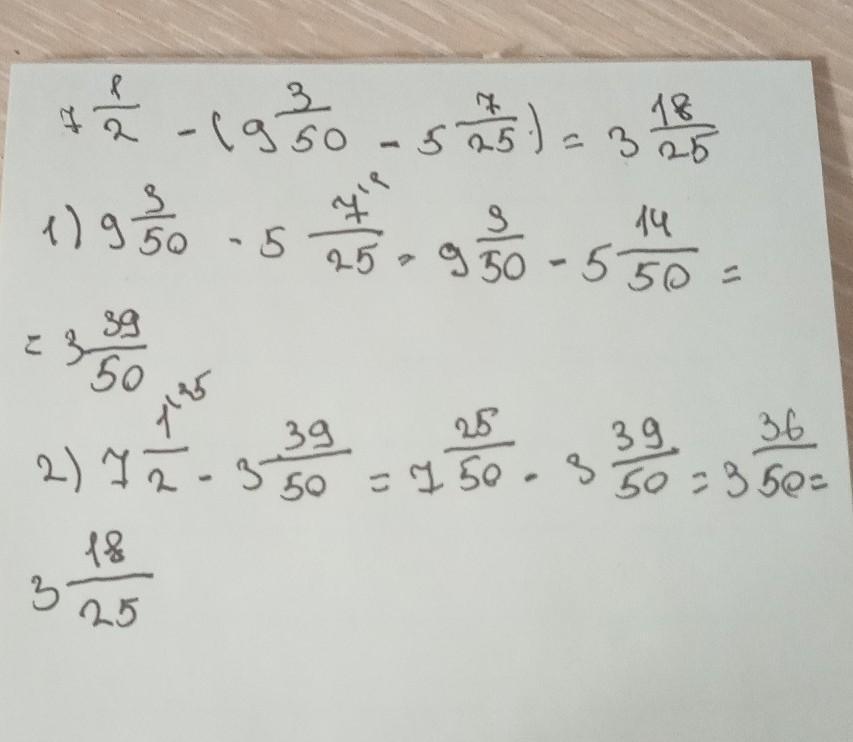 7 1/2 - (9 3/50 - 5 7/25) = 3 18/25
1) 9 3/50 - 5 7/25 = 9 3/50 - 5 14/50 =
= 3 39/50
2) 7 1/2 - 3 39/50 = 7 25/50 - 3 39/50 = 3 36/50 =
3 18/25